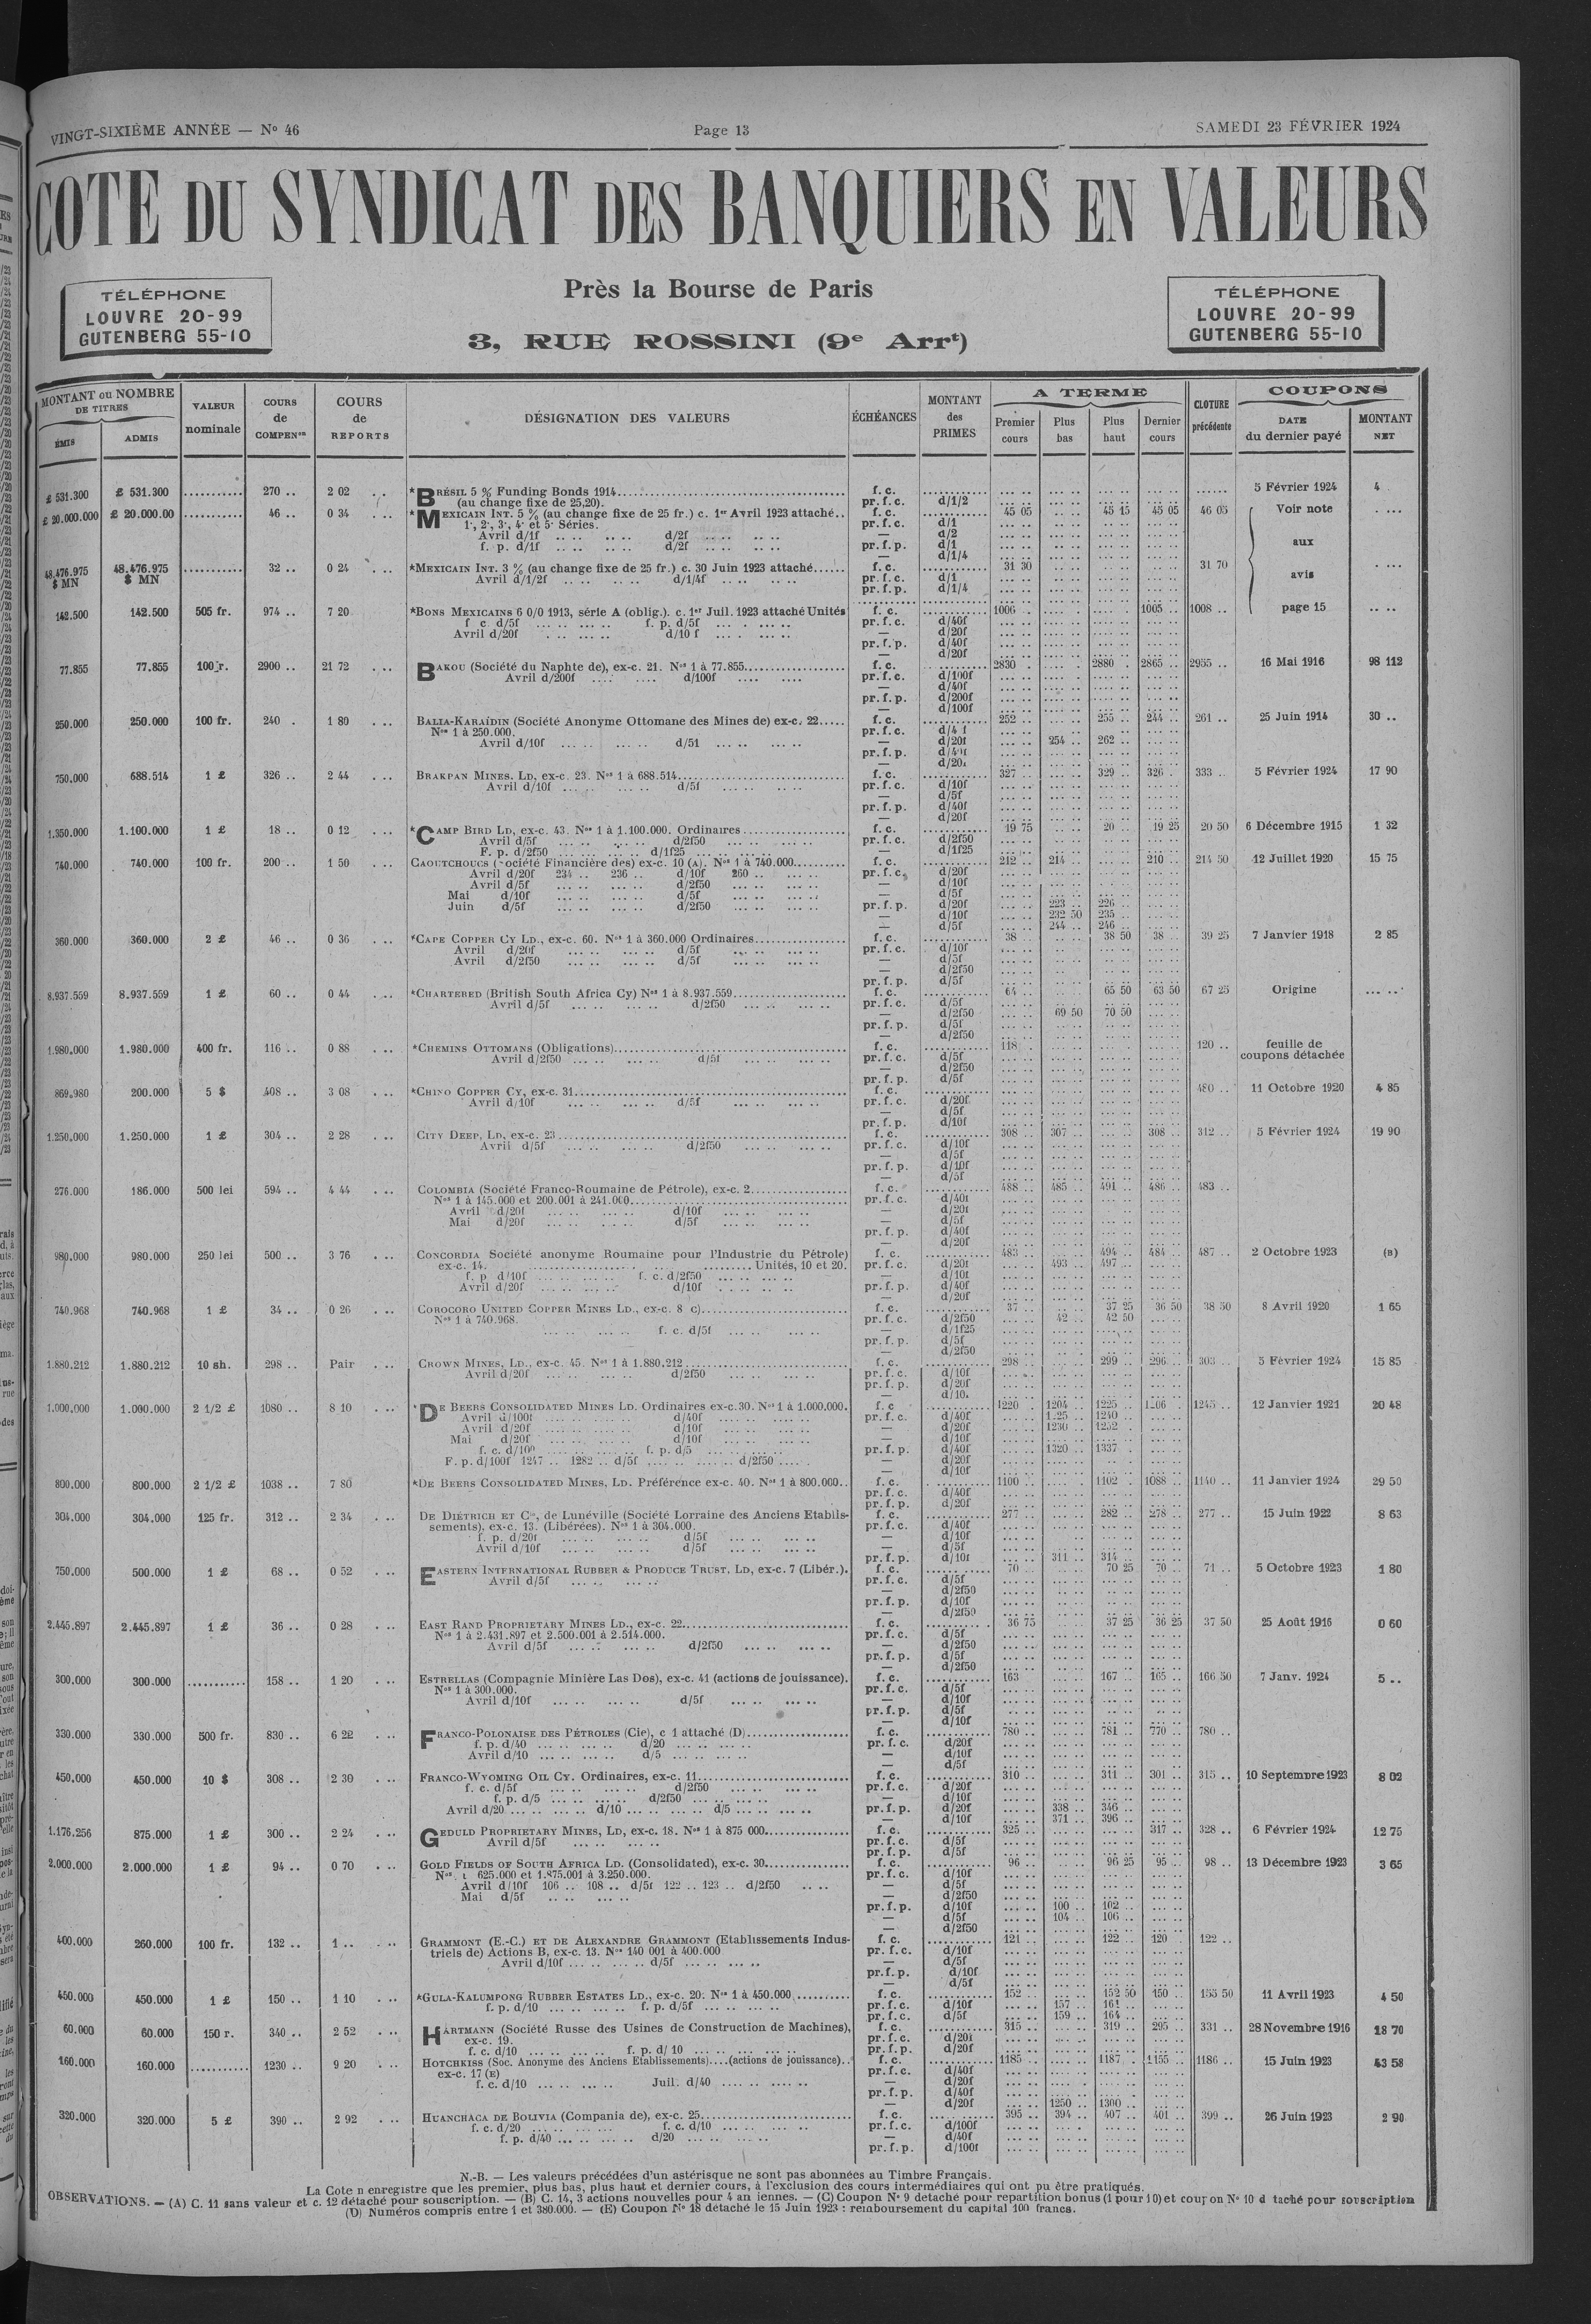 VINGT-SIXIÈME ANNÉE — Nº 46 Page 13 SAMEDI 23 FÉVRIER 1924
COTE DU SYNDICAT DES BANQUIERS EN VALEURS
Près la Bourse de Paris
3, RUE ROSSINI (9e Arrt)
TÉLÉPHONE
LOUVRE 20-99
GUTENBERG 55-10
TÉLÉPHONE
LOUVRE 20-99
GUTENBERG 55-10
MONTANT ou NOMBRE DE TITRES
ÉMIS ADMIS
VALEUR nominale
COURS de COMPENon
COURS de REPORTS
DÉSIGNATION DES VALEURS
ÉCHÉANCES
MONTANT des PRIMES
A TERME
Premier cours Plus bas Plus haut Dernier cours
CLOTURE précédente
COUPONS
DATE du dernier payé MONTANT NET
£ 531.300 £ 531.300 .......... 270 .. 2 02 *BRÉSIL 5 % Funding Bonds 1914 f. c. 5 Février 1924 4
(au change fixe de 25,20). pr. f. c. d/1/2
£ 20.000.000 £ 20.000.00 .......... 46 .. 0 34 *MEXICAIN INT. 5 % (au change fixe de 25 fr.) c. 1er Avril 1923 attaché.. f. c. 45 05 45 15 45 05 46 05 Voir note
1e, 2e, 3e, 4e et 5e Séries. pr. f. c. d/1
Avril d/1f d/2f — d/2
f. p. d/1f d/2f pr. f. p. d/1 aux
— d/1/4
48.476.975 $ MN 48.476.975 $ MN .......... 32 .. 0 24 *MEXICAIN INT. 3 % (au change fixe de 25 fr.) c. 30 Juin 1923 attaché f. c. 31 30 31 70
Avril d/1/2f d/1/4f pr. f. c. d/1 avis
pr. f. p. d/1/4
142.500 142.500 505 fr. 974 .. 7 20 *BONS MEXICAINS 6 0/0 1913, série A (oblig.). c. 1er Juil. 1923 attaché Unités f. c. 1006 1005 .. 1008 .. page 15
f c. d/5f f. p. d/5f pr. f. c. d/40f
Avril d/20f d/10 f — d/20f
pr. f. p. d/40f
— d/20f
77.855 77.855 100 r. 2900 .. 21 72 BAKOU (Société du Naphte de), ex-c. 21. Nos 1 à 77.855 f. c. 2830 2880 2865 .. 2955 .. 16 Mai 1916 98 112
Avril d/200f d/100f pr. f. c. d/100f
— d/40f
pr. f. p. d/200f
— d/100f
250.000 250.000 100 fr. 240 1 80 BALIA-KARAÏDIN (Société Anonyme Ottomane des Mines de) ex-c. 22 f. c. 252 .. 255 .. 244 .. 261 .. 25 Juin 1914 30 ..
Nos 1 à 250.000. pr. f. c.
Avril d/10f d/5f — d/20f 254 .. 262 ..
pr. f. p.
— d/20f
750.000 688.514 1 £ 326 .. 2 44 BRAKPAN MINES, LD, ex-c. 23. Nos 1 à 688.514 f. c. 327 329 .. 326 333 .. 5 Février 1924 17 90
Avril d/10f d/5f pr. f. c. d/10f
— d/5f
pr. f. p. d/40f
— d/20f
1.350.000 1.100.000 1 £ 18 .. 0 12 *CAMP BIRD LD, ex-c. 43. Nos 1 à 1.100.000. Ordinaires f. c. 19 75 20 .. 19 25 20 50 6 Décembre 1915 1 32
Avril d/5f d/2f50 pr. f. c. d/2f50
F. p. d/2f50 d/1f25 — d/1f25
740.000 740.000 100 fr. 200 .. 1 50 CAOUTCHOUCS (Société Financière des) ex-c. 10 (A). Nos 1 à 740.000 f. c. 212 .. 214 .. 210 .. 214 50 12 Juillet 1920 15 75
Avril d/20f 234 .. 236 .. d/10f 260 .. pr. f. c. d/20f
Avril d/5f d/2f50 — d/10f
Mai d/10f d/5f — d/5f
Juin d/5f d/2f50 pr. f. p. d/20f 223 .. 226 ..
— d/10f 232 50 235 ..
— d/5f 244 .. 246 ..
360.000 360.000 2 £ 46 .. 0 36 *CAPE COPPER CY LD., ex-c. 60. Nos 1 à 360.000 Ordinaires f. c. 38 .. 38 50 38 .. 39 25 7 Janvier 1918 2 85
Avril d/20f d/5f pr. f. c. d/10f
Avril d/2f50 d/5f — d/5f
— d/2f50
pr. f. p. d/5f
8.937.559 8.937.559 1 £ 60 .. 0 44 *CHARTERED (British South Africa Cy) Nos 1 à 8.937.559 f. c. 64 .. 65 50 63 50 67 25 Origine
Avril d/5f d/2f50 pr. f. c. d/5f
— d/2f50 69 50 70 50
pr. f. p. d/5f
— d/2f50
1.980.000 1.980.000 400 fr. 116 .. 0 88 *CHEMINS OTTOMANS (Obligations) f. c. 118 120 .. feuille de
Avril d/2f50 d/5f pr. f. c. d/5f coupons détachée
— d/2f50
pr. f. p. d/5f
869.980 200.000 5 $ 408 .. 3 08 *CHINO COPPER CY, ex-c. 31 f. c. 480 .. 11 Octobre 1920 4 85
Avril d/10f d/5f pr. f. c. d/20f
— d/5f
pr. f. p. d/10f
1.250.000 1.250.000 1 £ 304 .. 2 28 CITY DEEP, LD, ex-c. 23 f. c. 308 .. 307 .. 308 .. 312 .. 5 Février 1924 19 90
Avril d/5f d/2f50 pr. f. c. d/10f
— d/5f
pr. f. p. d/10f
— d/5f
276.000 186.000 500 lei 594 .. 4 44 COLOMBIA (Société Franco-Roumaine de Pétrole), ex-c. 2 f. c. 488 .. 485 .. 491 .. 486 .. 483 ..
Nos 1 à 145.000 et 200.001 à 241.000 pr. f. c. d/40f
Avril d/20f d/10f — d/20f
Mai d/20f d/5f — d/5f
pr. f. p. d/40f
— d/20f
980.000 980.000 250 lei 500 .. 3 76 CONCORDIA Société anonyme Roumaine pour l'Industrie du Pétrole) f. c. 483 .. 494 .. 484 .. 487 .. 2 Octobre 1923 (B)
ex-c. 14. Unités, 10 et 20. pr. f. c. d/20f 493 .. 497 ..
f. p d/10f f. c. d/2f50 — d/10f
Avril d/20f d/10f pr. f. p. d/40f
— d/20f
740.968 740.968 1 £ 34 .. 0 26 COROCORO UNITED COPPER MINES LD., ex-c. 8 c) f. c. 37 .. 37 25 36 50 38 50 8 Avril 1920 1 65
Nos 1 à 740.968. pr. f. c. d/2f50 42 .. 42 50
f. c. d/5f — d/1f25
pr. f. p. d/5f
— d/2f50
1.880.212 1.880.212 10 sh. 298 .. Pair CROWN MINES, LD., ex-c. 45. Nos 1 à 1.880.212 f. c. 298 .. 299 .. 296 .. 303 .. 5 Février 1924 15 85
Avril d/20f d/2f50 pr. f. c. d/10f
pr. f. p. d/20f
— d/10.
1.000.000 1.000.000 2 1/2 £ 1080 .. 8 10 *DE BEERS CONSOLIDATED MINES LD. Ordinaires ex-c. 30. Nos 1 à 1.000.000. f. c 1220 .. 1204 .. 1225 1206 .. 1245 .. 12 Janvier 1921 20 48
Avril d/100f d/40f pr. f. c. d/40f 1225 .. 1240 ..
Avril d/20f d/10f — d/20f 1230 .. 1252 ..
Mai d/20f d/10f — d/10f
f. c. d/100 f. p. d/5 pr. f. p. d/40f 1320 .. 1337
F. p. d/100f 1247 .. 1282 .. d/5f d/2f50 — d/20f
— d/10f
800.000 800.000 2 1/2 £ 1038 .. 7 80 *DE BEERS CONSOLIDATED MINES, LD. Préférence ex-c. 40. Nos 1 à 800.000.. f. c. 1100 .. 1102 .. 1088 .. 1140 .. 11 Janvier 1924 29 50
pr. f. c. d/40f
pr. f. p. d/20f
304.000 304.000 125 fr. 312 .. 2 34 DE DIÉTRICH ET Cie, de Lunéville (Société Lorraine des Anciens Etablis- f. c. 277 .. 282 .. 278 .. 277 .. 15 Juin 1922 8 63
sements), ex-c. 13. (Libérées). Nos 1 à 304.000. pr. f. c. d/40f
f. p. d/20f d/5f — d/10f
Avril d/10f d/5f — d/5f
pr. f. p. d/10f 311 .. 314 ..
750.000 500.000 1 £ 68 .. 0 52 EASTERN INTERNATIONAL RUBBER & PRODUCE TRUST. LD, ex-c. 7 (Libér.). f. c. 70 .. 70 25 70 .. 71 .. 5 Octobre 1923 1 80
Avril d/5f pr. f. c. d/5f
— d/2f50
pr. f. p. d/10f
— d/2f50
2.445.897 2.445.897 1 £ 36 .. 0 28 EAST RAND PROPRIETARY MINES LD., ex-c. 22 f. c. 36 75 37 25 36 25 37 50 25 Août 1916 0 60
Nos 1 à 2.431.897 et 2.500.001 à 2.514.000. pr. f. c. d/5f
Avril d/5f d/2f50 — d/2f50
pr. f. p. d/5f
— d/2f50
300.000 300.000 .......... 158 .. 1 20 ESTRELLAS (Compagnie Minière Las Dos), ex-c. 41 (actions de jouissance). f. c. 163 167 .. 165 .. 166 50 7 Janv. 1924 5 ..
Nos 1 à 300.000. pr. f. c. d/5f
Avril d/10f d/5f — d/10f
pr. f. p. d/5f
— d/10f
330.000 330.000 500 fr. 830 .. 6 22 FRANCO-POLONAISE DES PÉTROLES (Cie), c 1 attaché (D) f. c. 780 .. 781 .. 770 .. 780 ..
f. p. d/40 d/20 pr. f. c. d/20f
Avril d/10 d/5 — d/10f
— d/5f
450.000 450.000 10 $ 308 .. 2 30 FRANCO-WYOMING OIL CY. Ordinaires, ex-c. 11 f. c. 310 .. 311 .. 301 .. 315 .. 10 Septembre 1923 8 02
f. c. d/5f d/2f50 pr. f. c. d/20f
f. p. d/5 d/2f50 — d/10f
Avril d/20 d/10 d/5 pr. f. p. d/20f 338 .. 346 ..
— d/10f 371 .. 396 ..
1.176.256 875.000 1 £ 300 .. 2 24 GEDULD PROPRIETARY MINES, LD, ex-c. 18. Nos 1 à 875 000 f. c. 325 .. 317 .. 328 .. 6 Février 1924 12 75
Avril d/5f pr. f. c. d/5f
pr. f. p. d/5f
2.000.000 2.000.000 1 £ 94 .. 0 70 GOLD FIELDS OF SOUTH AFRICA LD. (Consolidated), ex-c. 30 f. c. 96 .. 96 25 95 .. 98 .. 13 Décembre 1923 3 65
Nos 1 625.000 et 1.875.001 à 3.250.000. pr. f. c. d/10f
Avril d/10f 106 .. 108 .. d/5f 122 .. 123 .. d/2f50 — d/5f
Mai d/5f — d/2f50
pr. f. p. d/10f 100 .. 102 ..
— d/5f 104 .. 106 ..
— d/2f50
400.000 260.000 100 fr. 132 .. 1 .. GRAMMONT (E.-C.) ET DE ALEXANDRE GRAMMONT (Etablissements Indus- f. c. 121 .. 122 .. 120 .. 122 ..
triels de) Actions B, ex-c. 13. Nos 140 001 à 400.000 pr. f. c. d/10f
Avril d/10f d/5f — d/5f
pr. f. p. d/10f
— d/5f
450.000 450.000 1 £ 150 .. 1 10 *GULA-KALUMPONG RUBBER ESTATES LD., ex-c. 20. Nos 1 à 450.000 f. c. 152 .. 152 50 150 .. 155 50 11 Avril 1923 4 50
f. p. d/10 f. p. d/5f pr. f. c. d/10f 157 .. 161 ..
pr. f. c. d/5f 159 .. 164 ..
60.000 60.000 150 r. 340 .. 2 52 HARTMANN (Société Russe des Usines de Construction de Machines), f. c. 315 .. 319 .. 295 .. 331 .. 28 Novembre 1916 18 70
ex-c. 19. pr. f. c. d/20f
f. c. d/10 f. p. d/ 10 pr. f. p. d/20f
160.000 160.000 .......... 1230 .. 9 20 HOTCHKISS (Soc. Anonyme des Anciens Etablissements)....(actions de jouissance).. f. c. 1185 .. 1187 1155 .. 1186 .. 15 Juin 1923 43 58
ex-c. 17 (E) pr. f. c. d/40f
f. c. d/10 Juil. d/40 — d/20f
pr. f. p. d/40f
— d/20f 1250 .. 1300 ..
320.000 320.000 5 £ 390 .. 2 92 HUANCHACA DE BOLIVIA (Compania de), ex-c. 25 f. c. 395 .. 394 .. 407 .. 401 .. 399 .. 26 Juin 1923 2 90
f. c. d/20 f. c. d/10 pr. f. c. d/100f
f. p. d/40 d/20 — d/40f
pr. f. p. d/100f
N.-B. — Les valeurs précédées d'un astérisque ne sont pas abonnées au Timbre Français.
La Cote n enregistre que les premier, plus bas, plus haut et dernier cours, à l'exclusion des cours intermédiaires qui ont pu être pratiqués.
OBSERVATIONS. — (A) C. 11 sans valeur et c. 12 détaché pour souscription. — (B) C. 14, 3 actions nouvelles pour 4 an iennes. — (C) Coupon Nº 9 detaché pour repartition bonus (1 pour 10) et coupon Nº 10 d taché pour souscription
(D) Numéros compris entre 1 et 380.000. — (E) Coupon Nº 18 détaché le 15 Juin 1923 : remboursement du capital 100 francs.